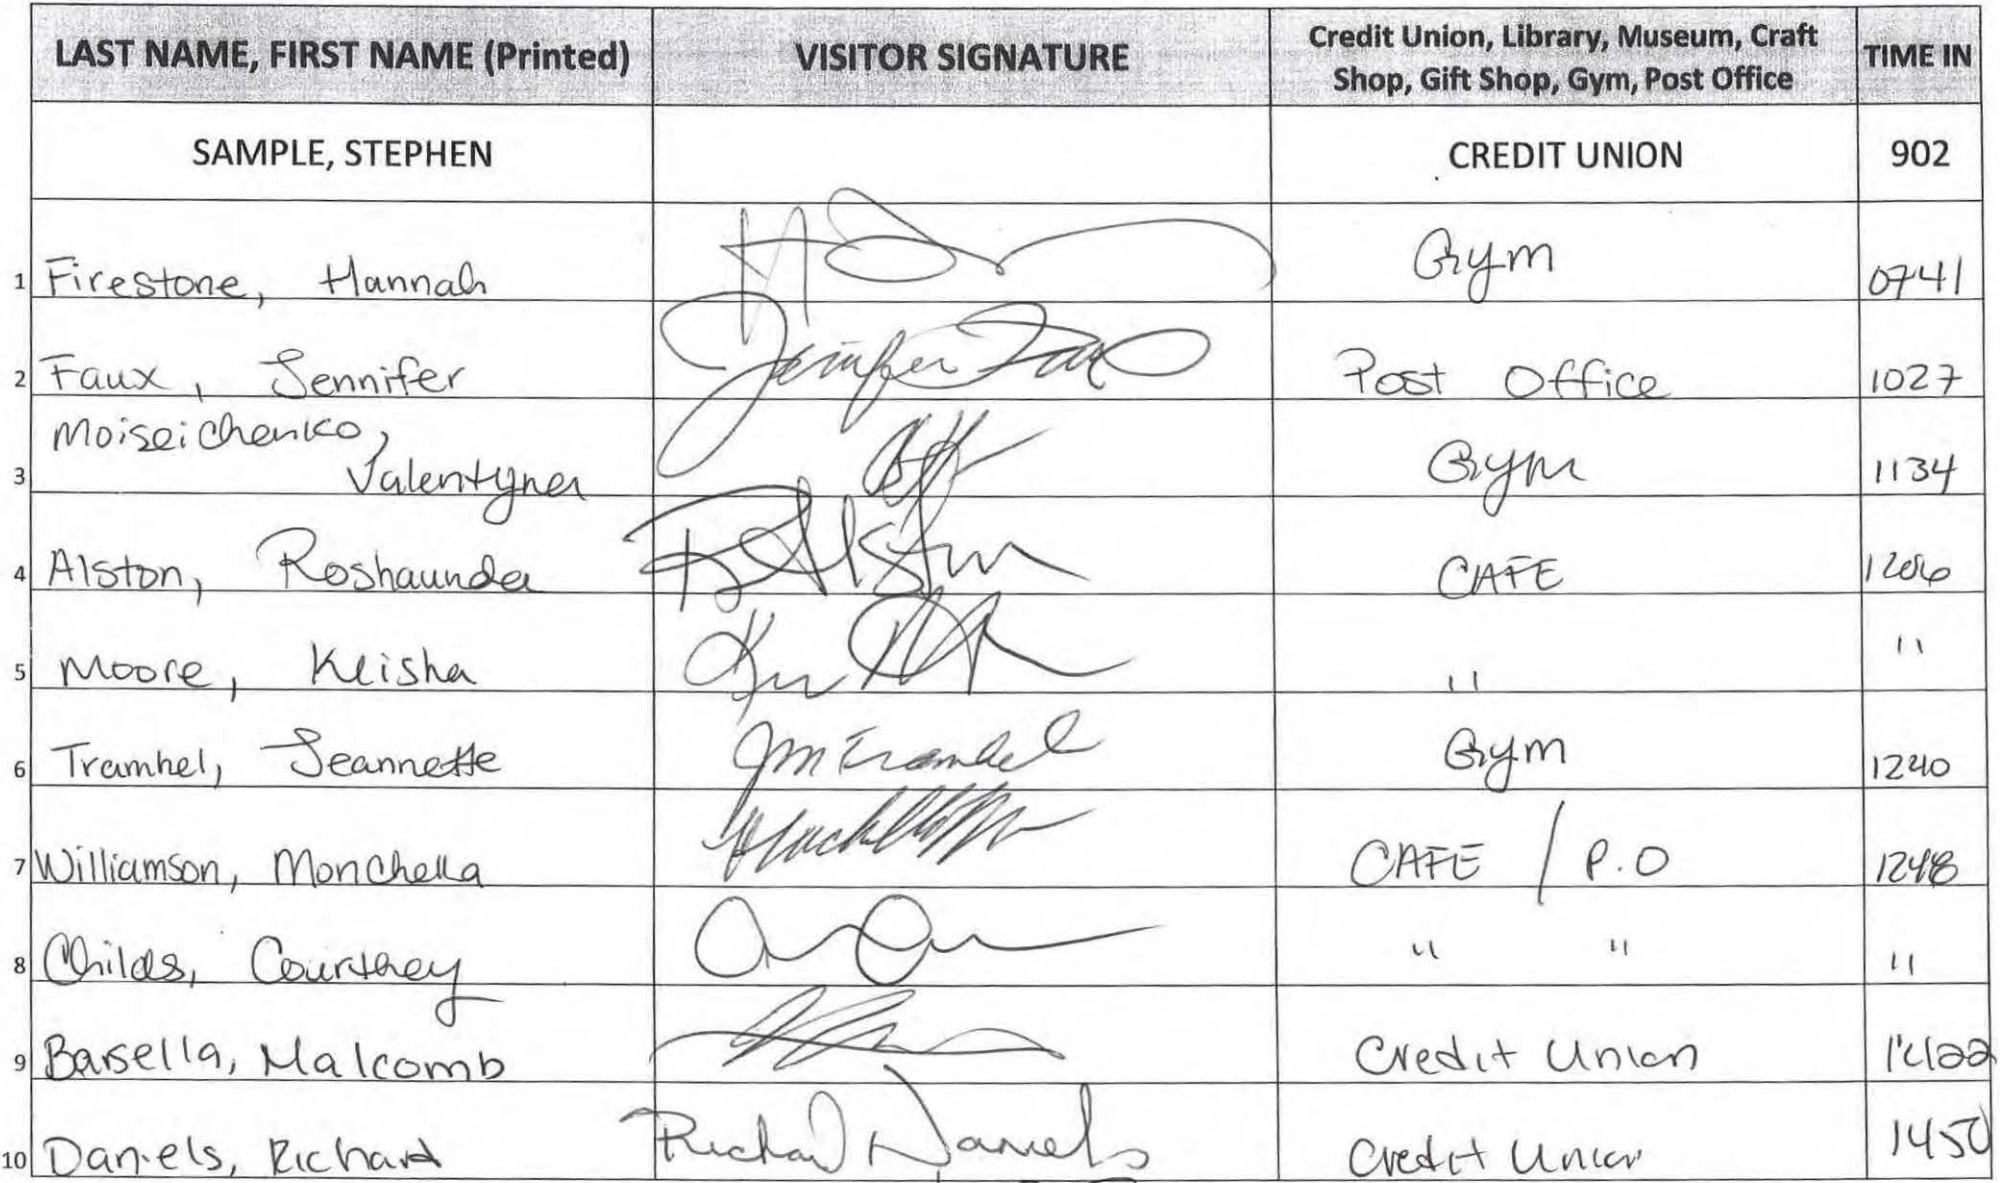 LAST NAME, FIRST NAME (Printed) VISITOR SIGNATURE Credit Union, Library, Museum, Craft Shop, Gift Shop, Gym, Post Office TIME IN
SAMPLE, STEPHEN CREDIT UNION 902
1 Firestone, Hannah Gym 0741
2 Faux, Jennifer Jennifer Faux Post Office 1027
Moiseichenko,
3 Valentyna Gym 1134
4 Alston, Roshaunda R Alston CAFE 1206
5 Moore, Keisha " "
6 Tramhel, Jeannette JM Tramhel Gym 1240
7 Williamson, Monchella CAFE / P.O 1248
8 Childs, Courtney " " "
9 Barsella, Malcomb Credit Union 1422
10 Daniels, Richard Richard Daniels Credit Union 1450